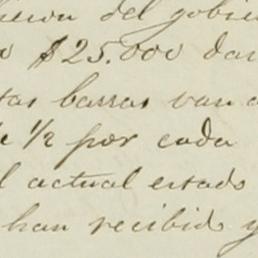 del gobie
$25.000 da
tas barras van a
1/2 por cada
l actual estado
han recibido y